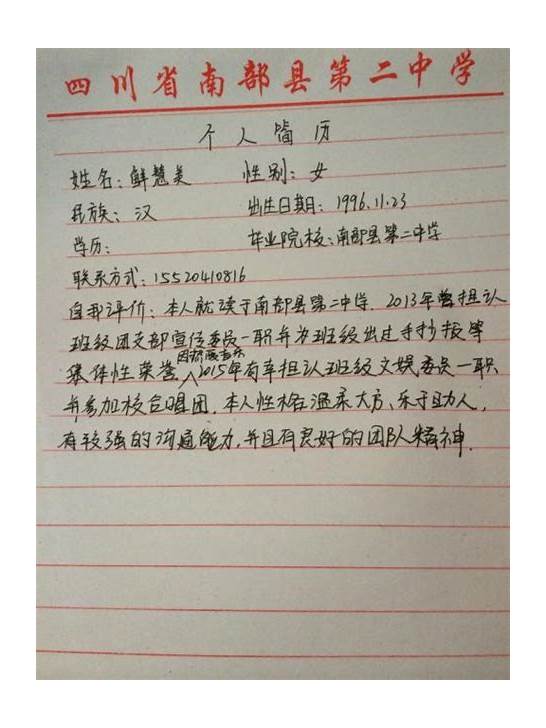 四川省南部县第二中学
个人简历
姓名：鲜慧美 性别：女
民族：汉 出生日期：1996.11.23
学历： 毕业院校：南部县第二中学
联系方式：15520410816
自我评价：本人就读于南部县第二中学.2013年曾担认
班级团支部宣传委员一职并为班级出过手抄报等
因热爱音乐
集体性荣誉 2015年有幸担认班级文娱委员一职
并参加校合唱团.本人性格温柔大方、乐于助人，
有较强的沟通能力,并且有良好的团队精神.